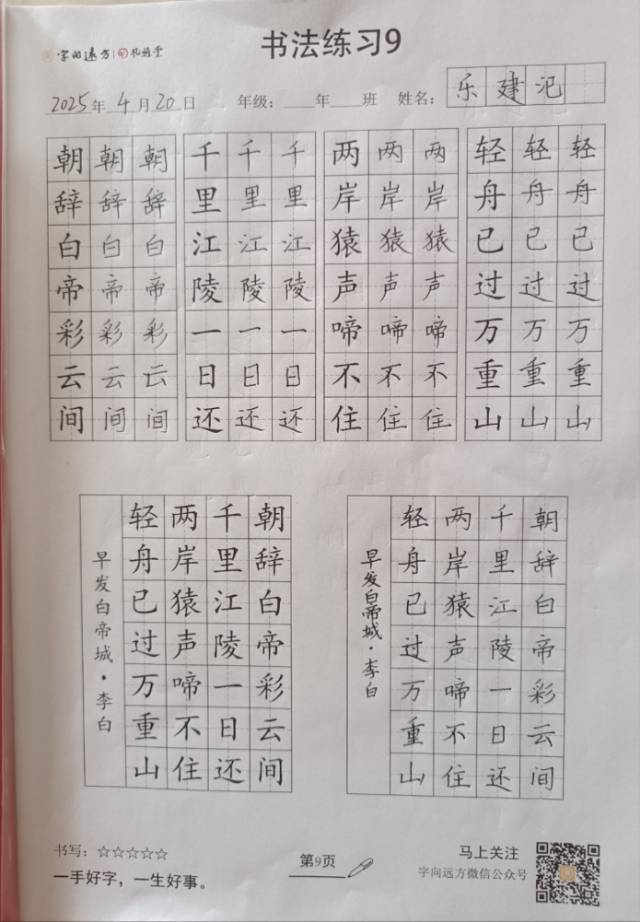 字向远方
书法练习9
2025年4月20日 年级： 年 班 姓名：乐建汜
朝朝朝 千千千 两两两 轻轻轻
辞辞辞 里里里 岸岸岸 舟舟舟
白白白 江江江 猿猿猿 已已已
帝帝帝 陵陵陵 声声声 过过过
彩彩彩 一一一 啼啼啼 万万万
云云云 日日日 不不不 重重重
间间间 还还还 住住住 山山山
早发白帝城·李白
朝辞白帝彩云间
千里江陵一日还
两岸猿声啼不住
轻舟已过万重山
早发白帝城·李白
朝辞白帝彩云间
千里江陵一日还
两岸猿声啼不住
轻舟已过万重山
书写：☆☆☆☆☆
一手好字，一生好事。
第9页
马上关注
字向远方微信公众号